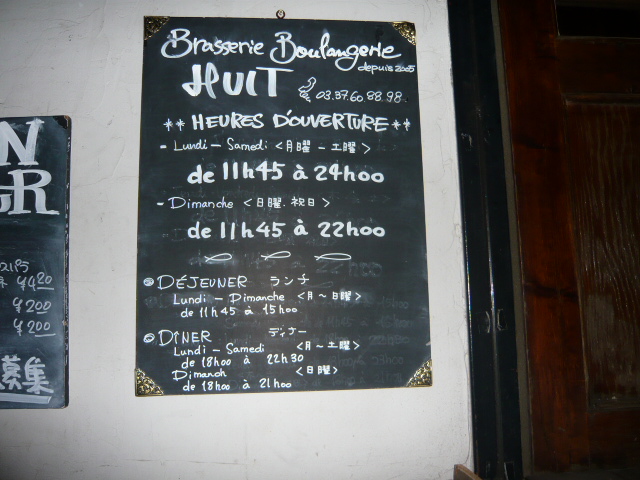 Brasserie Boulangerie
depuis 2005
HUIT 03.37.60.88.98
** HEURES D'OUVERTURE **
- Lundi - Samedi <月曜 - 土曜>
de 11h45 à 24h00
- Dimanche <日曜.祝日>
de 11h45 à 22h00
DÉJEUNER ランチ
Lundi - Dimanche <月～日曜>
de 11h45 à 15h00
DÎNER ディナー
Lundi - Samedi <月～土曜>
de 18h00 à 22h30
Dimanch <日曜>
de 18h00 à 21h00
N
GR
¥420
¥200
¥200
募集